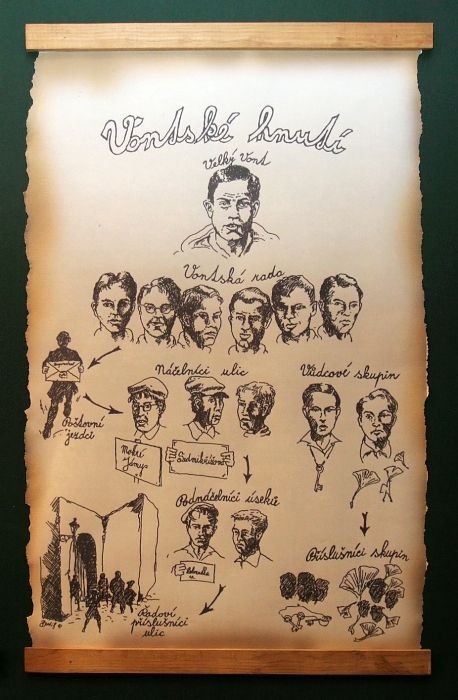 Vontské hnutí
Velký Vont
Vontská rada
Náčelníci ulic
Vůdcové skupin
Poštovní
jezdci
Mokrý
Janus
Sedmikrížová
Podnáčelníci úseků
Příslušníci skupin
Řadoví
příslušníci
ulic